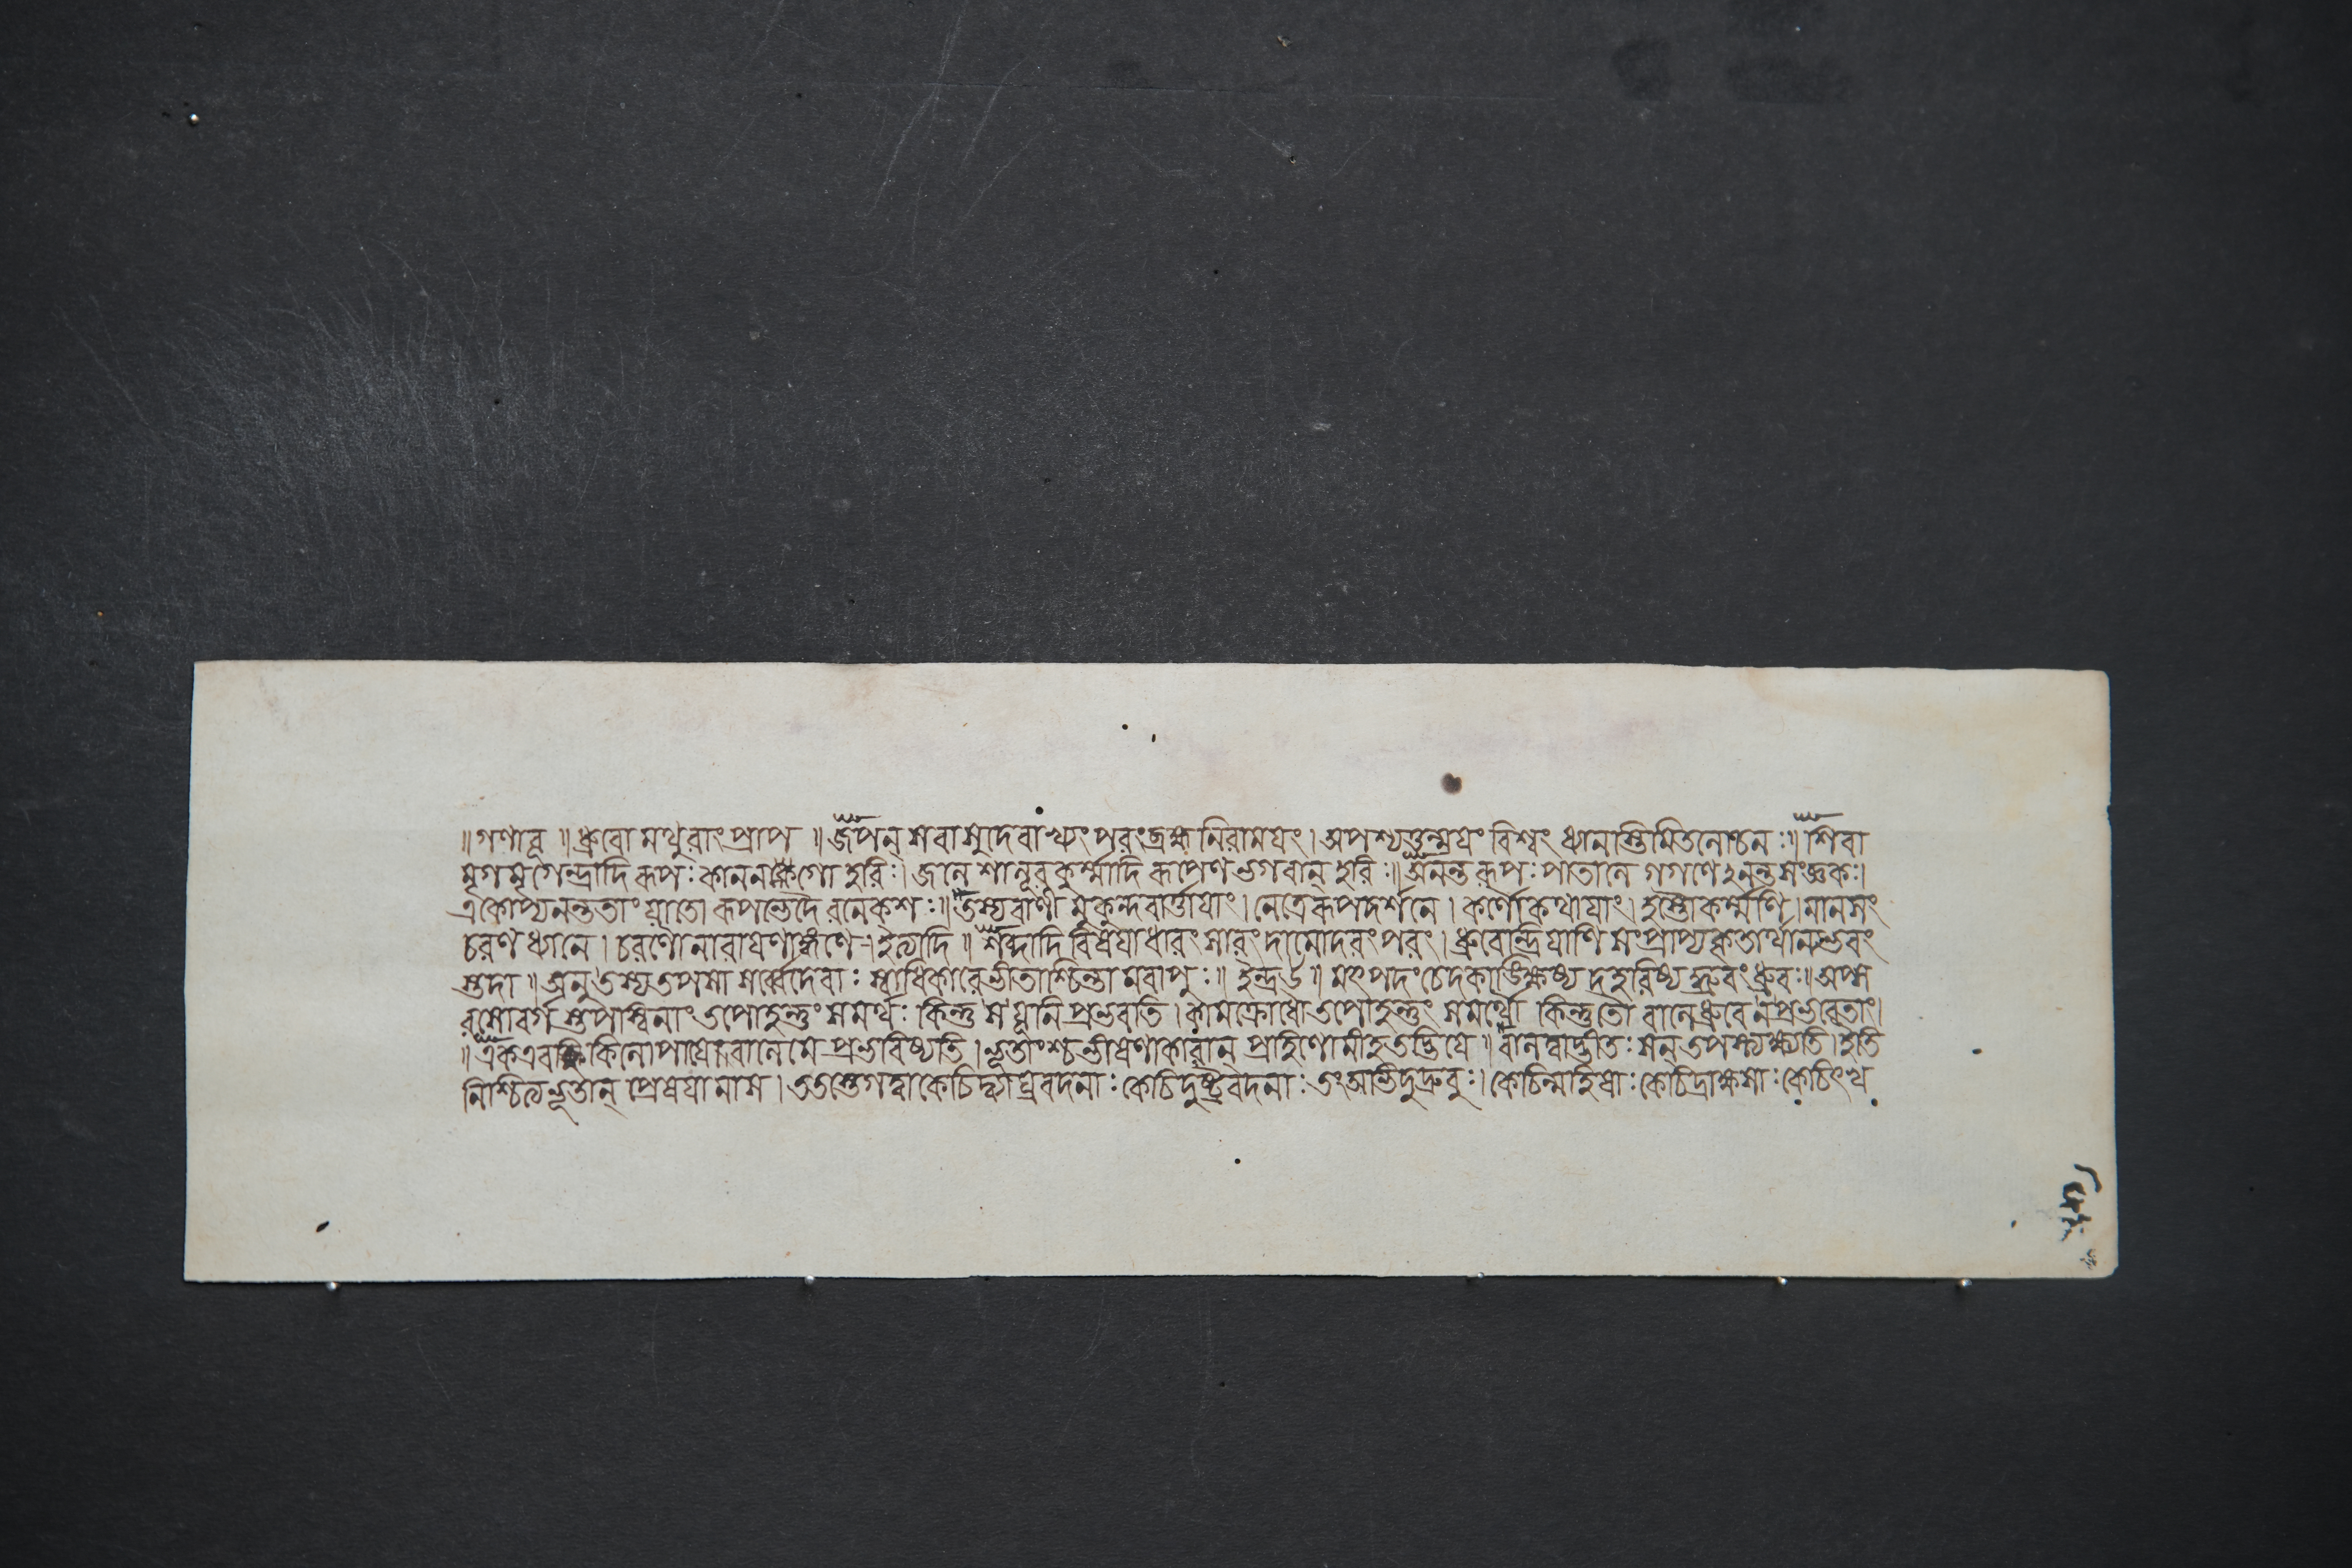 ॥ গণাবূ ॥ ধ্রুবো মথুরাং প্রাপ ॥ জপন্ সবাসুদেবাখ্যং পরংব্রহ্ম নিরাময়ং । অপশ্যত্তন্ময়ং বিশ্বং ধ্যানাস্তিমিতলোচনঃ ॥ শিবা
মৃগমৃগেন্দ্রাদি রূপঃ কাননাঙ্কগো হরিঃ । জলে শালূরকূর্ম্মাদি রূপেণ ভগবান্ হরিঃ ॥ অনন্তরূপঃ পাতালে গগণেঽনন্তসংজ্ঞকঃ ।
একোপ্যনন্ততাং যাতো রূপভেদৈ রনেকশঃ ॥ তস্য বাণী মুকুন্দবার্ত্তায়াং । নেত্রে রূপদর্শনে । কর্ণৌ কথায়াং । হস্তৌ কর্ম্মণি । মানসং
চরণধ্যানে । চরণৌ নারায়ণাঙ্গণে । ইত্যাদি ॥ শব্দাদি বিষয়াধারং সারং দামোদরং পরং । ধ্রুবেন্দ্রিয়াণি সংপ্রাপ্য কৃতার্থান্যভবং
স্তদা ॥ অনু তস্য তপসা সর্ব্বেদেবাঃ স্বাধিকারে ভীতাশ্চিন্তা মবাপুঃ ॥ ইন্দ্র উ ॥ মৎপদং চেদকাঙ্ক্ষিষ্য দ্রহরিষ্য দ্ধ্রুবং ধ্রুবঃ ॥ অপ্স
রসোবর্গ স্তপস্বিনাং তপোহন্তুং সমর্থঃ কিন্তু স যূনি প্রভবতি । কামক্রোধৌ তপোহন্তুং সমর্থৌ কিন্তু তৌ বালে ধ্রুবে ন প্রভবেতাং ।
॥ এক এব কিলোপায়ো বালে মে প্রভবিষ্যতি । ভূতাংশ্চ ভীষণাকারান্ প্রাহিণোমীহ তদ্ভিয়ে ॥ বালত্বাদ্ভীতঃ সন্ তপস্ত্যক্ষ্যতি । ইতি
নিশ্চিত্য ভূতান্ প্রেষয়ামাস । ততস্তে গত্বা কেচিদ্ব্যাঘ্রবদনাঃ কেচিদুষ্ট্রবদনাঃ তং অভিদুদ্রুবুঃ । কেচিন্মহিষাঃ কেচিদ্রাক্ষসাঃ কেচিৎখ